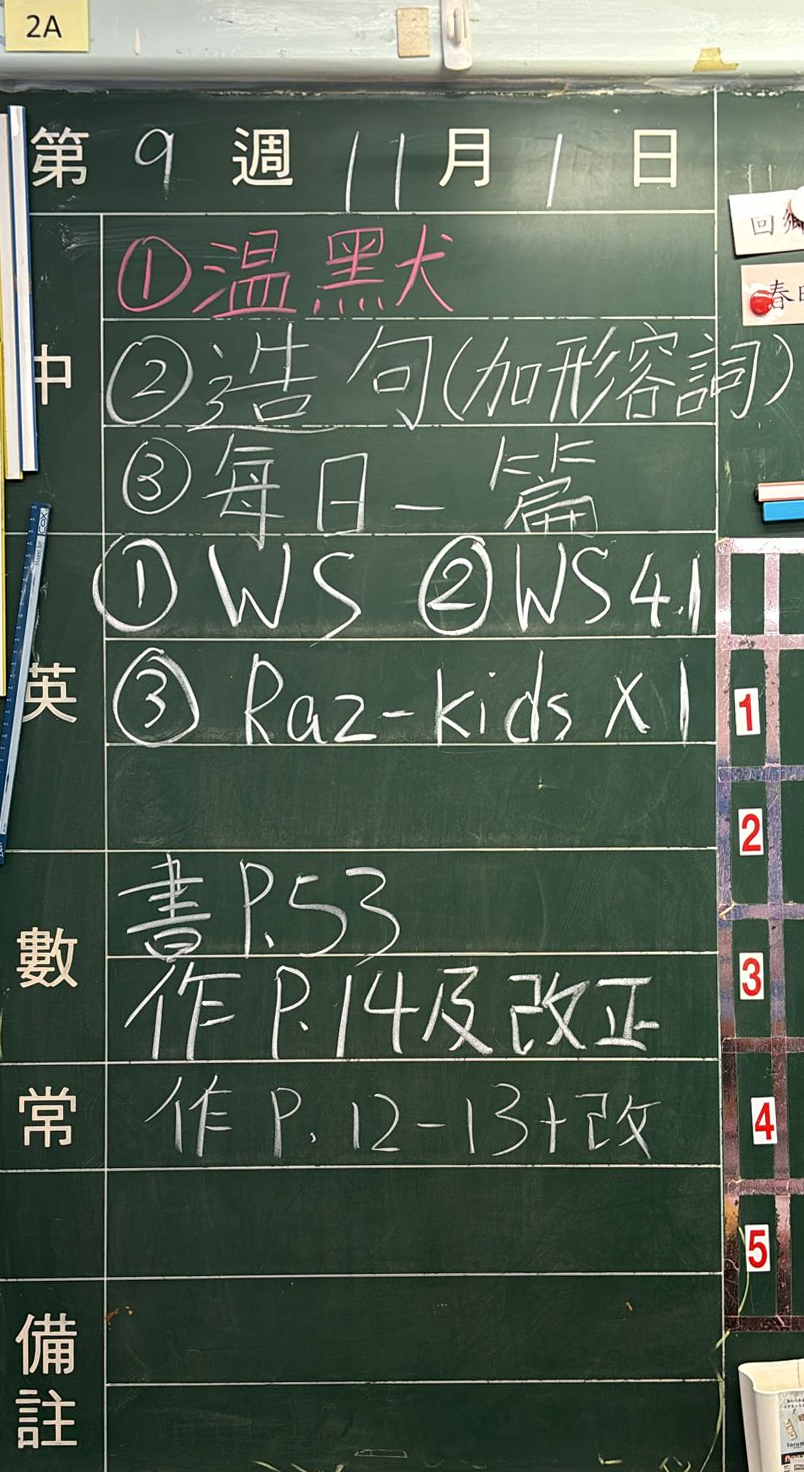 2A
第 9 週 11 月 1 日
中
①温默
②造句(加形容詞)
③每日一篇
英
① WS ② WS 4.1
③ Raz-kids X 1
數
書 P.53
作 P.14及改正
常
作 P. 12-13+改
備註
回鄉
春
COX
1
2
3
4
5